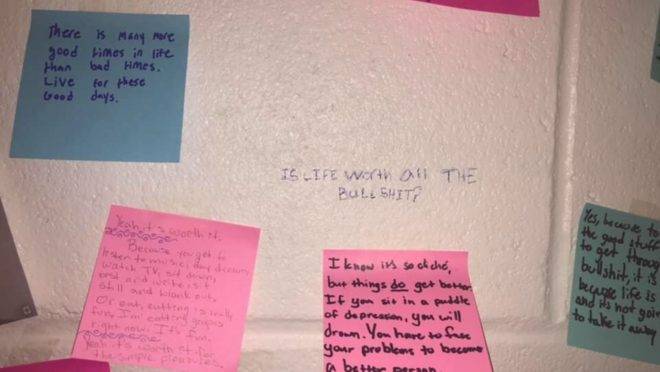 There is many more
good times in life
than bad times.
Live for these
Good days.
IS LIFE worth all THE
BULLSHIT?
Yeah it's worth it.
Because you get to
listen to music, day dream,
watch TV, sit down,
and write, sit
still and
Or eat, eating is really
fun, I'm eating grapes
right now. It's fun.
Yeah it's worth it for
the simple pleasures.
I know it's so cliché,
but things do get better
If you sit in a puddle
of depression, you will
drown. You have to face
your problems to become
a better person.
Yes, because to
the good stuff
to get through
bullshit, it is
because life is
and it's not goin
to take it away